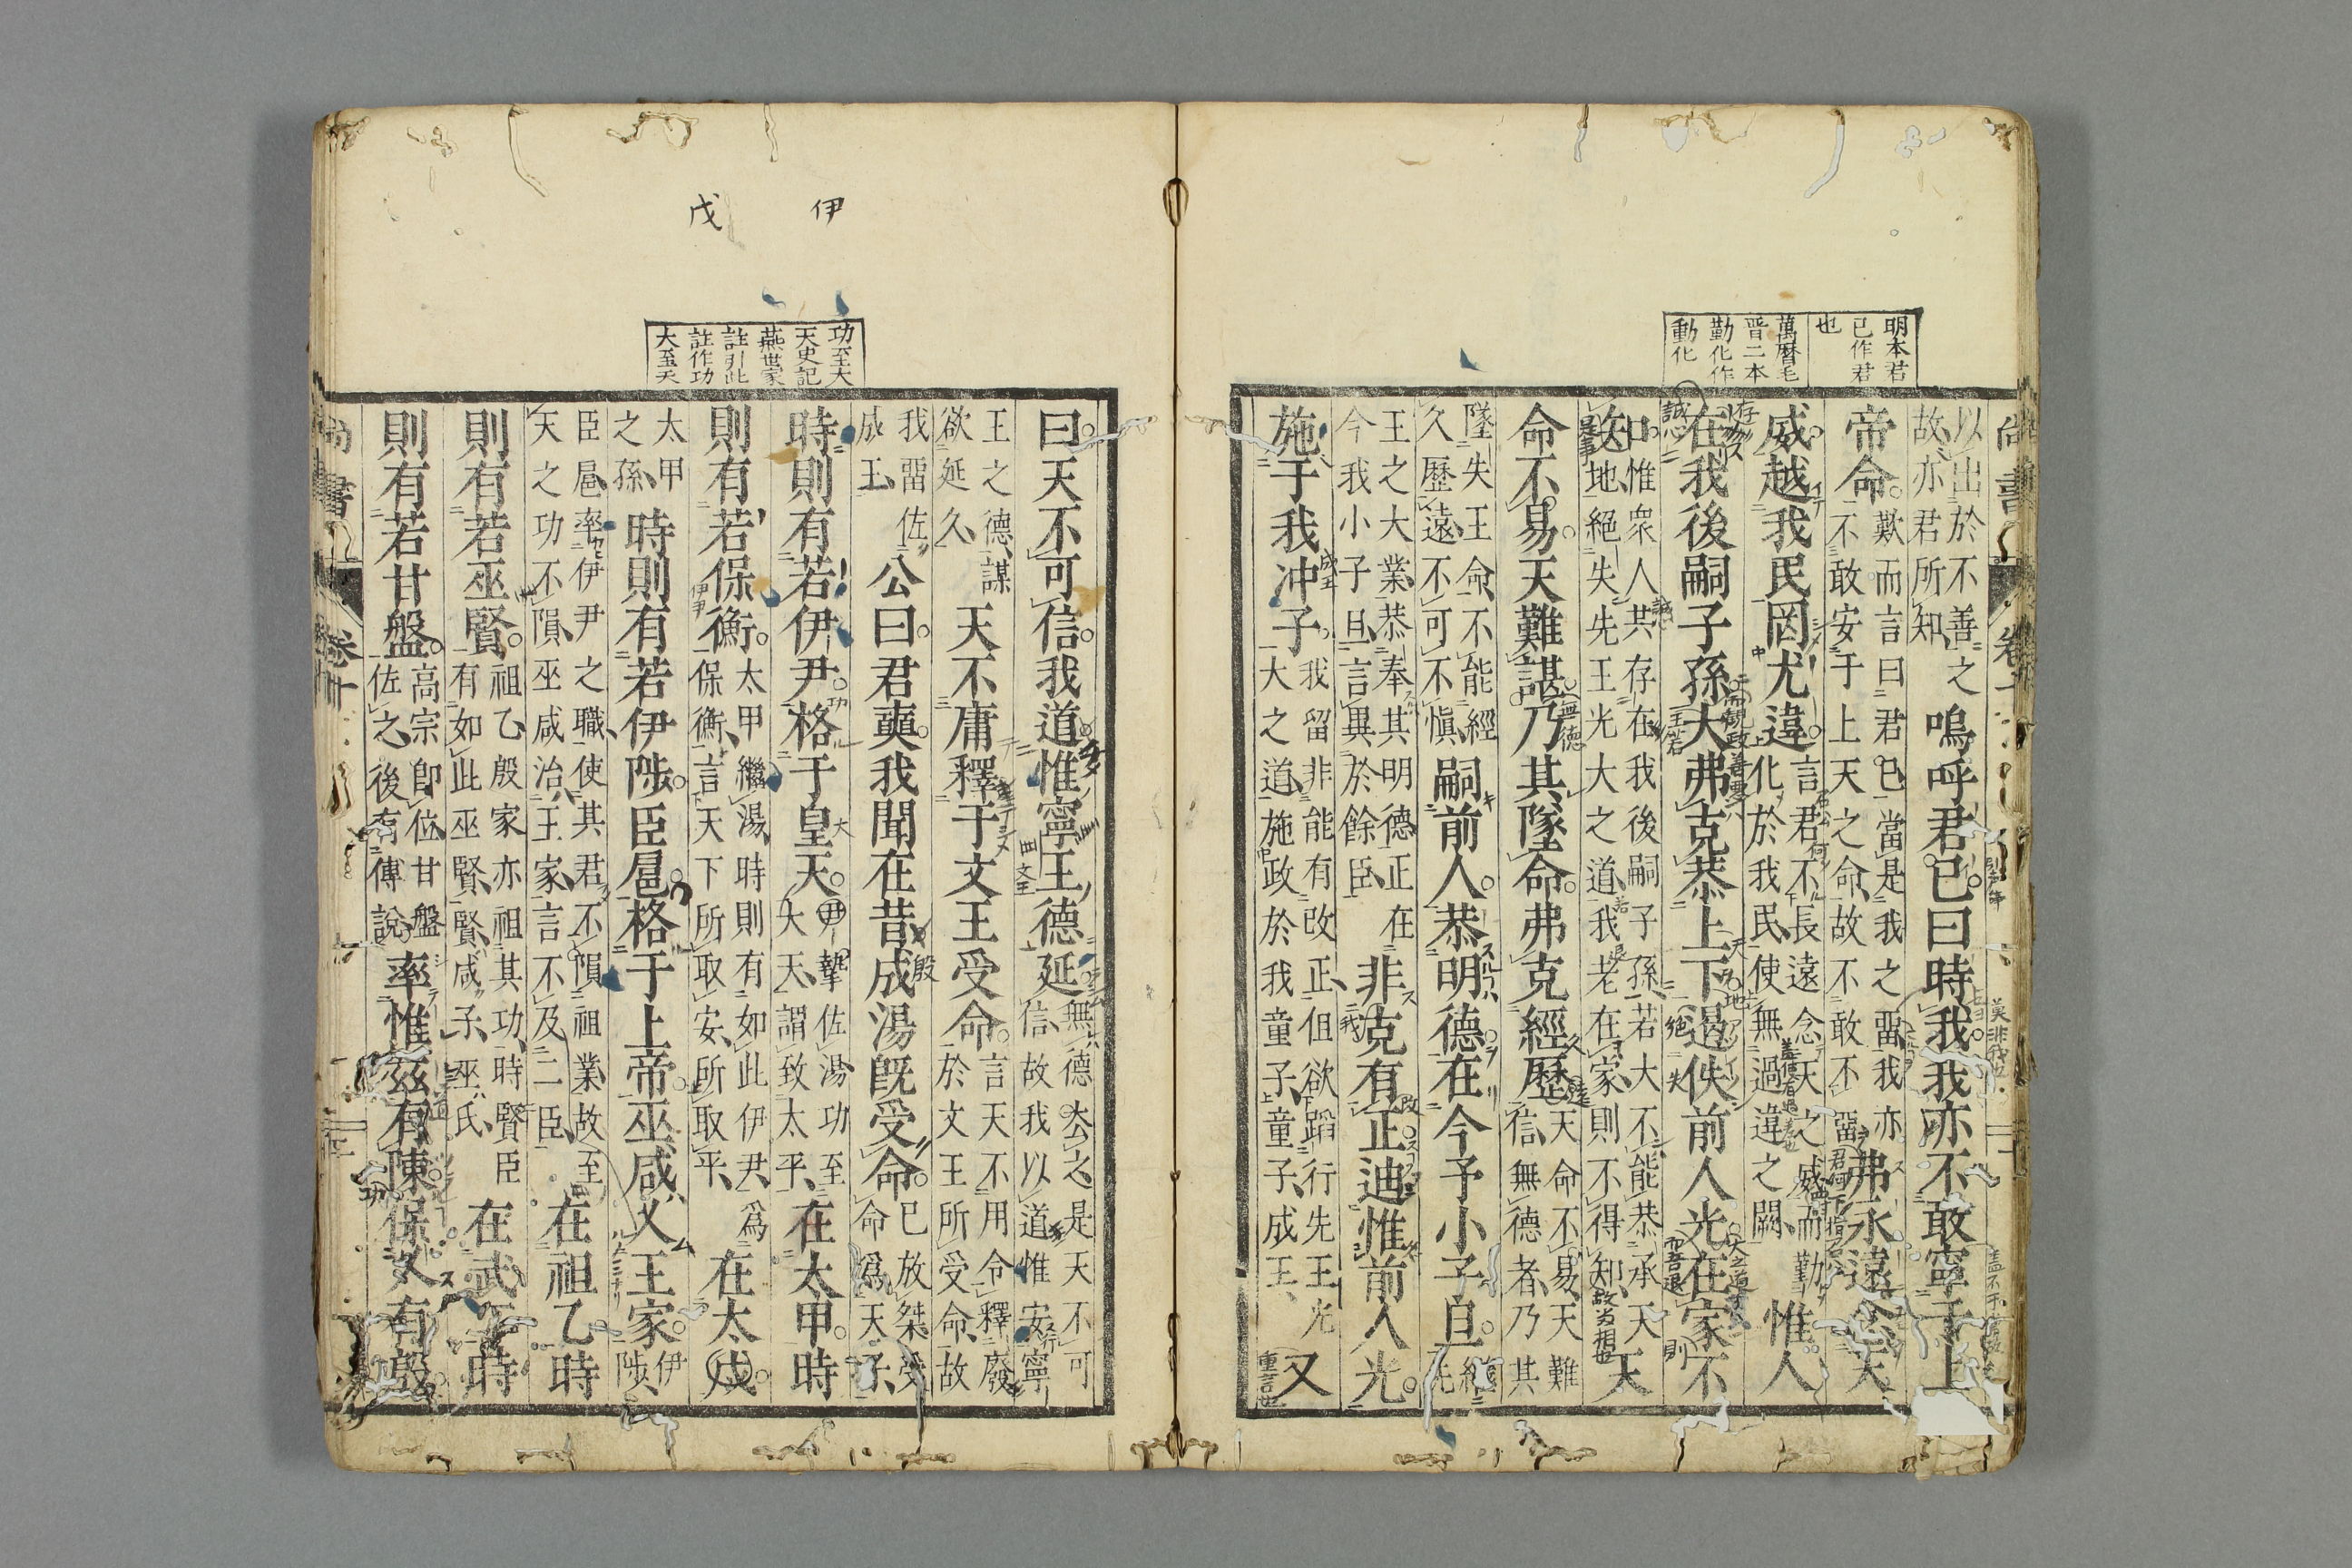 明本君
已作君
也
萬曆毛
晋二本
勤化作
動化
以出於不善之
故亦君所知
嗚呼君已曰時我我亦不敢寧于上
帝命
歎而言曰君已當是我之畱我亦
不敢安于上天之命故不敢不畱
弗永遠念天
威越我民罔尤違
言君不長遠念天之威而勤
化於我民使無過違之闕
惟人
在我後嗣子孫大弗克恭上下遏佚前人光在家不
惟衆人共存在我後嗣子孫若大不能恭承天
地絕失先王光大之道我老在家則不得知
天
命不易天難諶乃其墜命弗克經歷
天命不易天難
信無德者乃其
墜失王命不能經
久歷遠不可不慎
嗣前人恭明德在今予小子旦
繼先
王之大業恭奉其明德正在
今我小子旦言異於餘臣
非克有正迪惟前人光
施于我冲子
我留非能有改正但欲蹈行先王光
大之道施政於我童子童子成王
又
功至大
天史記
燕世家
註引此
註作功
大至天
伊
戊
曰天不可信我道惟寧王德延
無德去之是天不可
信故我以道惟安寧
王之德謀
欲延久
天不庸釋于文王受命
言天不用令釋廢
於文王所受命故
我畱佐
成王
公曰君奭我聞在昔成湯既受命
已放桀受
命爲天子
時則有若伊尹格于皇天
尹摯佐湯功至
大天謂致太平
在太甲時
則有若保衡
太甲繼湯時則有如此伊尹爲
保衡言天下所取安所取平
在太戊
太甲
之孫
時則有若伊陟臣扈格于上帝巫咸乂王家
伊
陟
臣扈率伊尹之職使其君不隕祖業故至
天之功不隕巫咸治王家言不及二臣
在祖乙時
則有若巫賢
祖乙殷家亦祖其功時賢臣
有如此巫賢賢咸子巫氏
在武丁時
則有若甘盤
高宗卽位甘盤
佐之後有傅說
率惟茲有陳保乂有殷
尚書
卷十